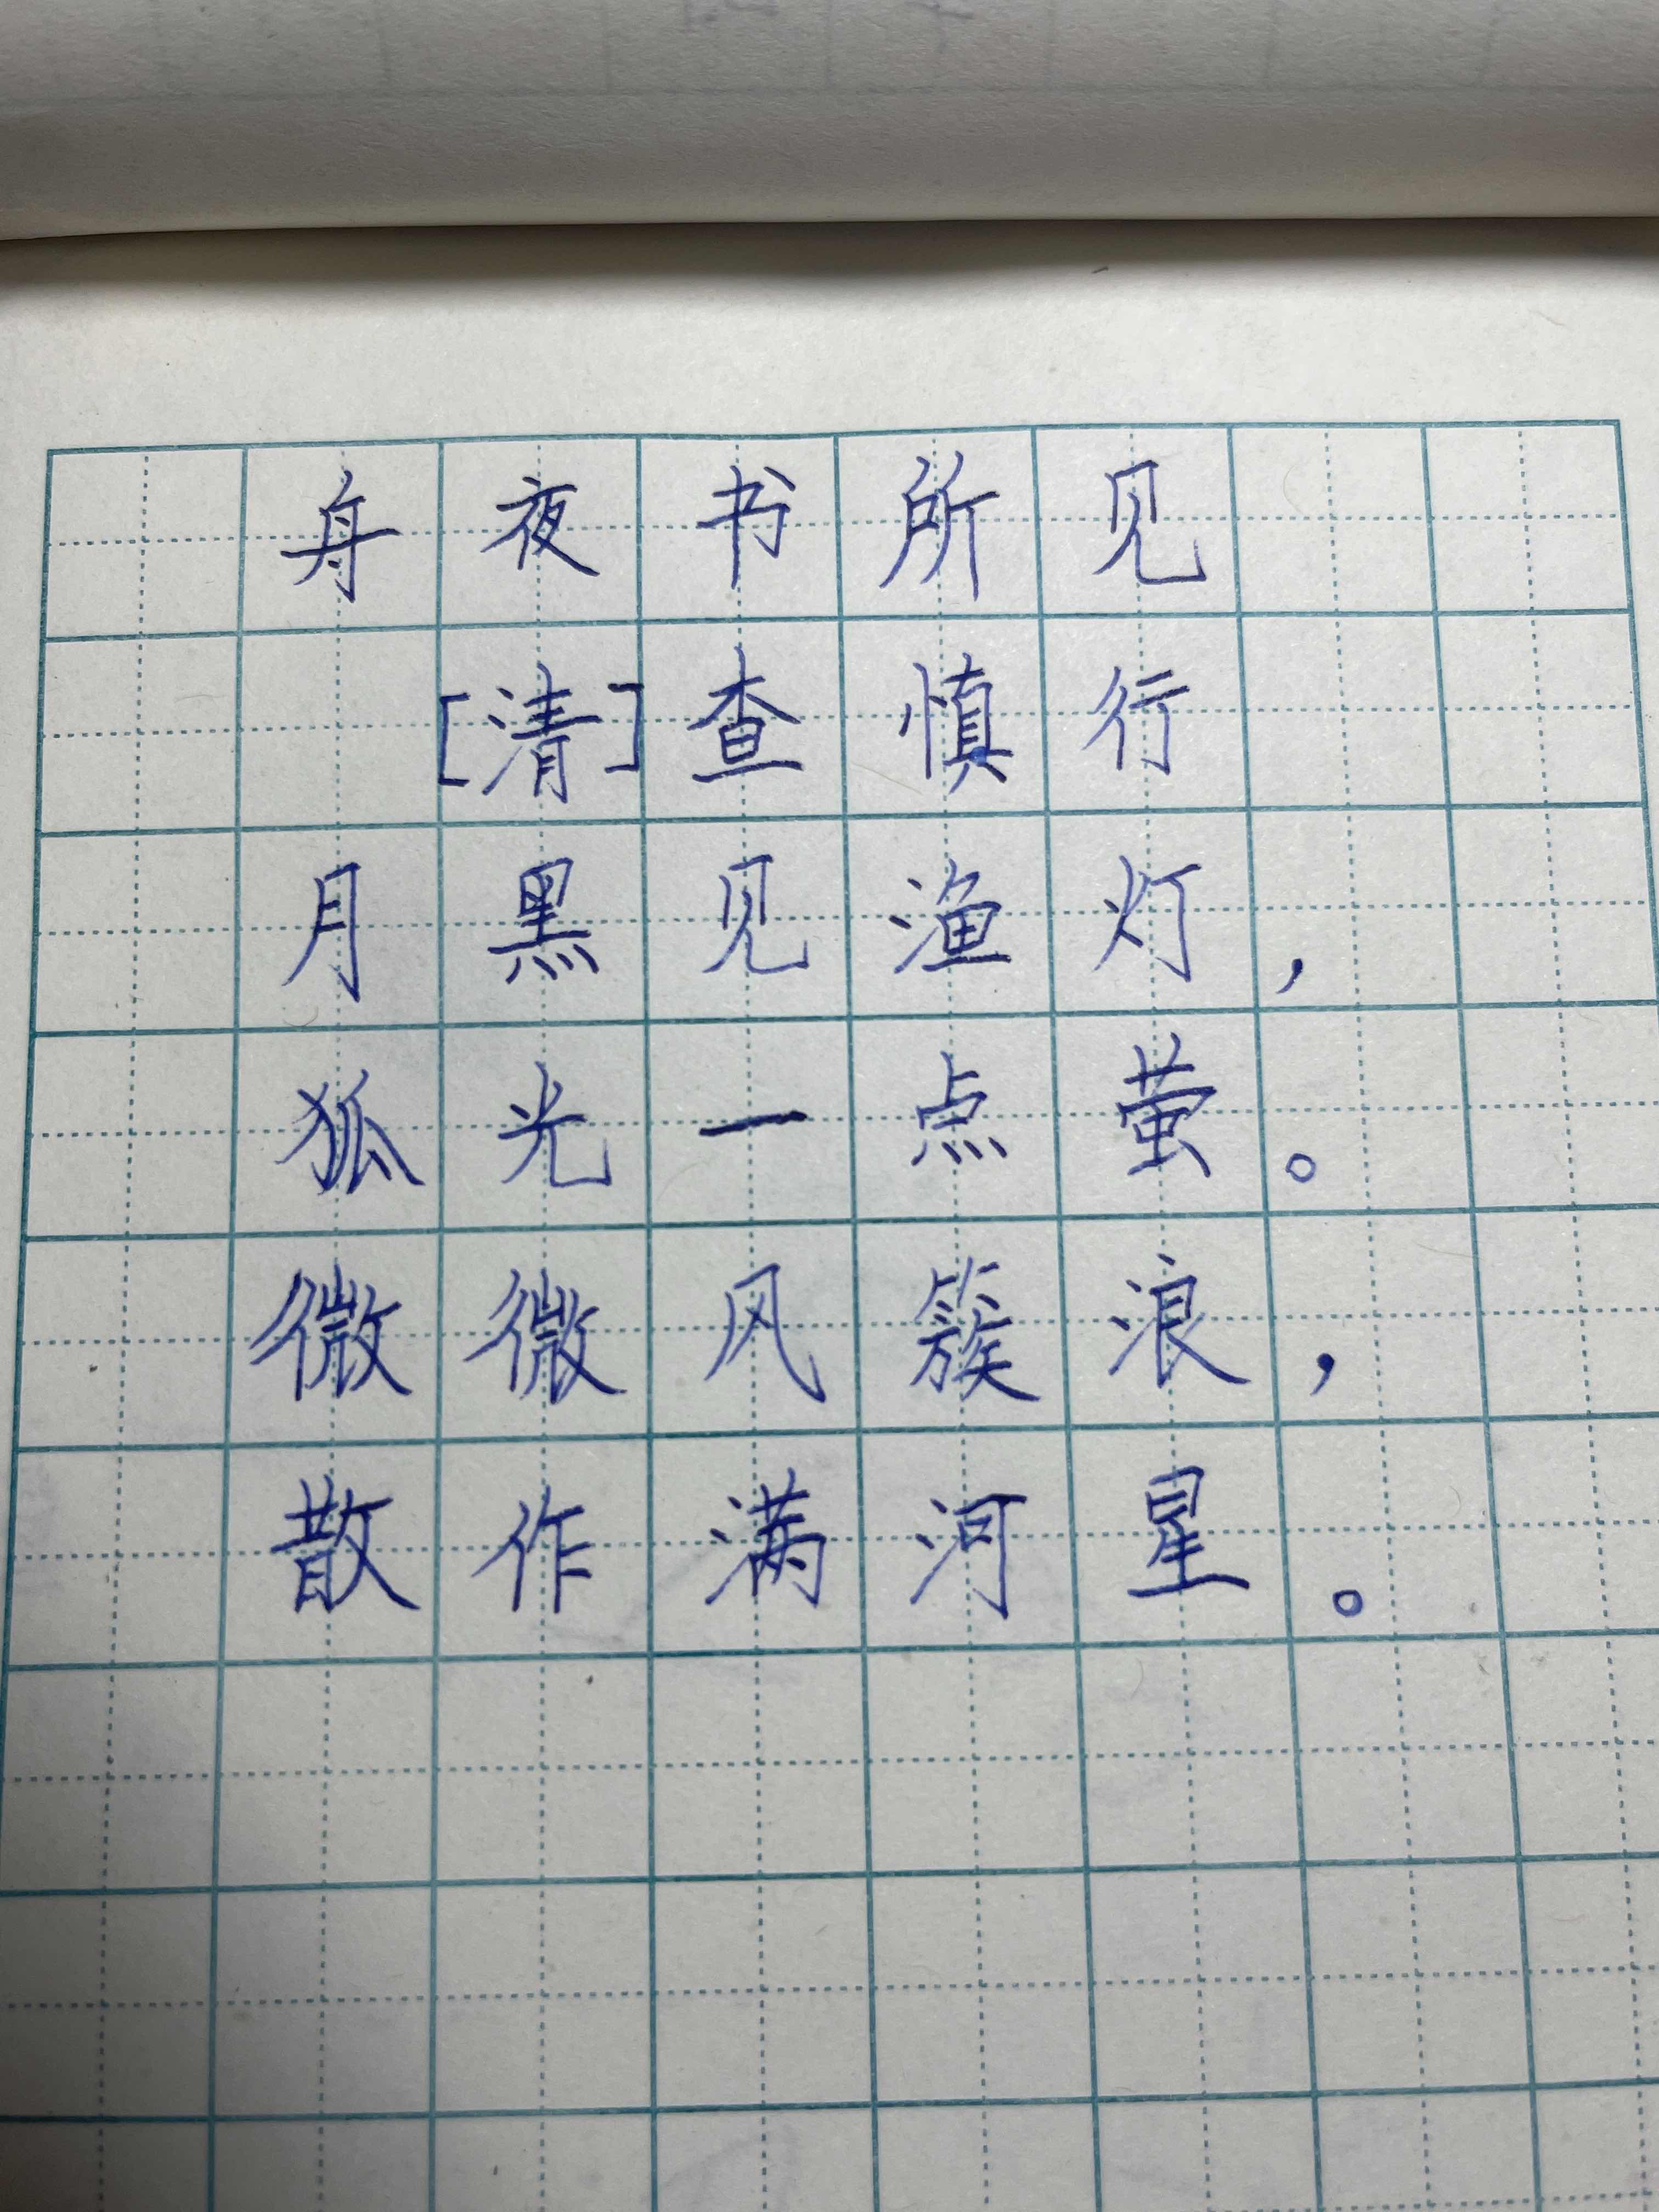 舟夜书所见
[清]查慎行
月黑见渔灯，
狐光一点萤。
微微风簇浪，
散作满河星。